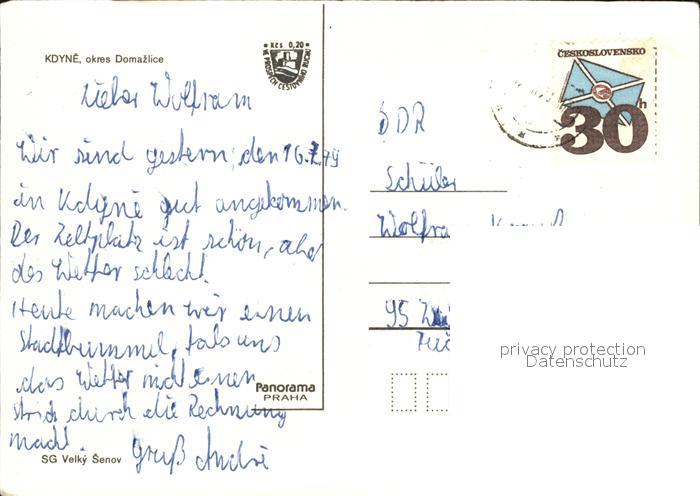 KDYNĚ, okres Domažlice
Kčs 0,20
VE PROSPĚCH CESTOVNÍHO RUCHU
Lieber Wolfram
Wir sind gestern, den 16.7.79
in Kdyně gut angekommen.
Der Zeltplatz ist schön, aber
das Wetter schlecht.
Heute machen wir einen
Stadtbummel, falls uns
das Wetter nicht einen
Strich durch die Rechnung
macht.
Gruß André
Panorama
PRAHA
SG Velký Šenov
ČESKOSLOVENSKO
30h
DDR
Schüler
Wolfra
95
privacy protection
Datenschutz